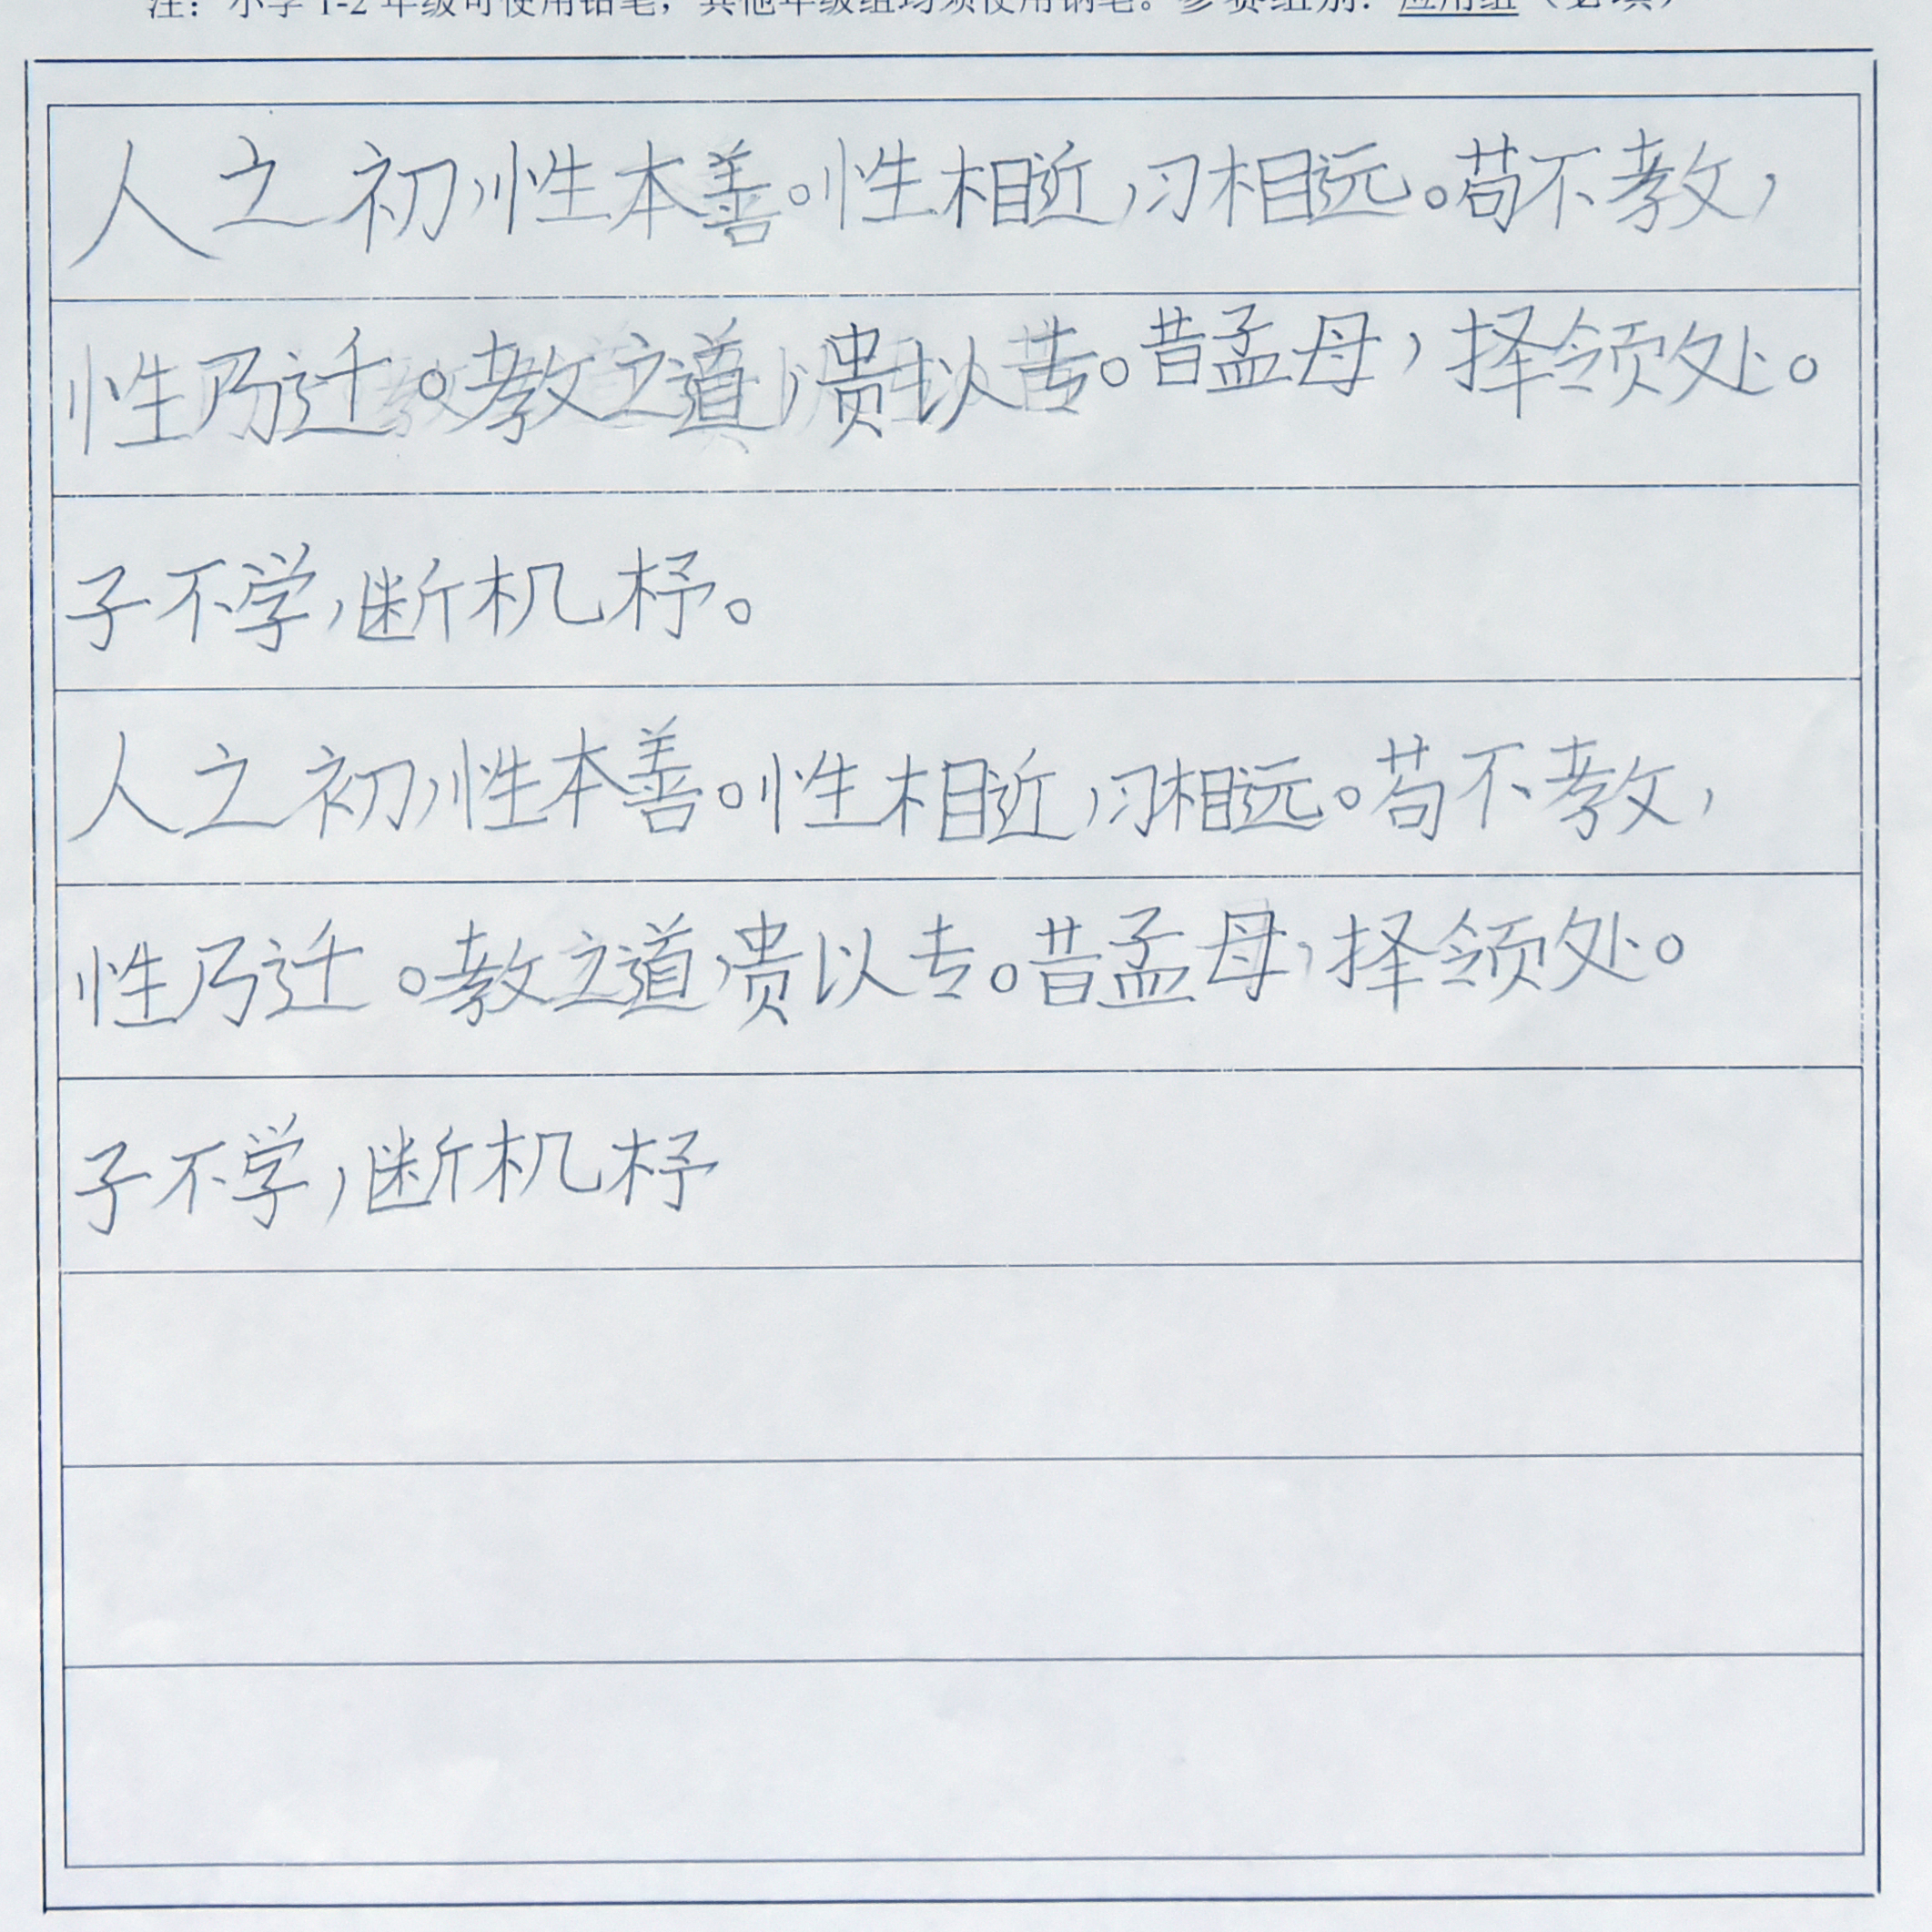 注：小学1-2年级可使用铅笔，其他年级组均须使用钢笔。参赛组别：应用组（必填）
人之初，性本善。性相近，习相远。苟不教，
性乃迁。教之道，贵以专。昔孟母，择领处。
子不学，断机杼。
人之初，性本善。性相近，习相远。苟不教，
性乃迁。教之道，贵以专。昔孟母，择领处。
子不学，断机杼